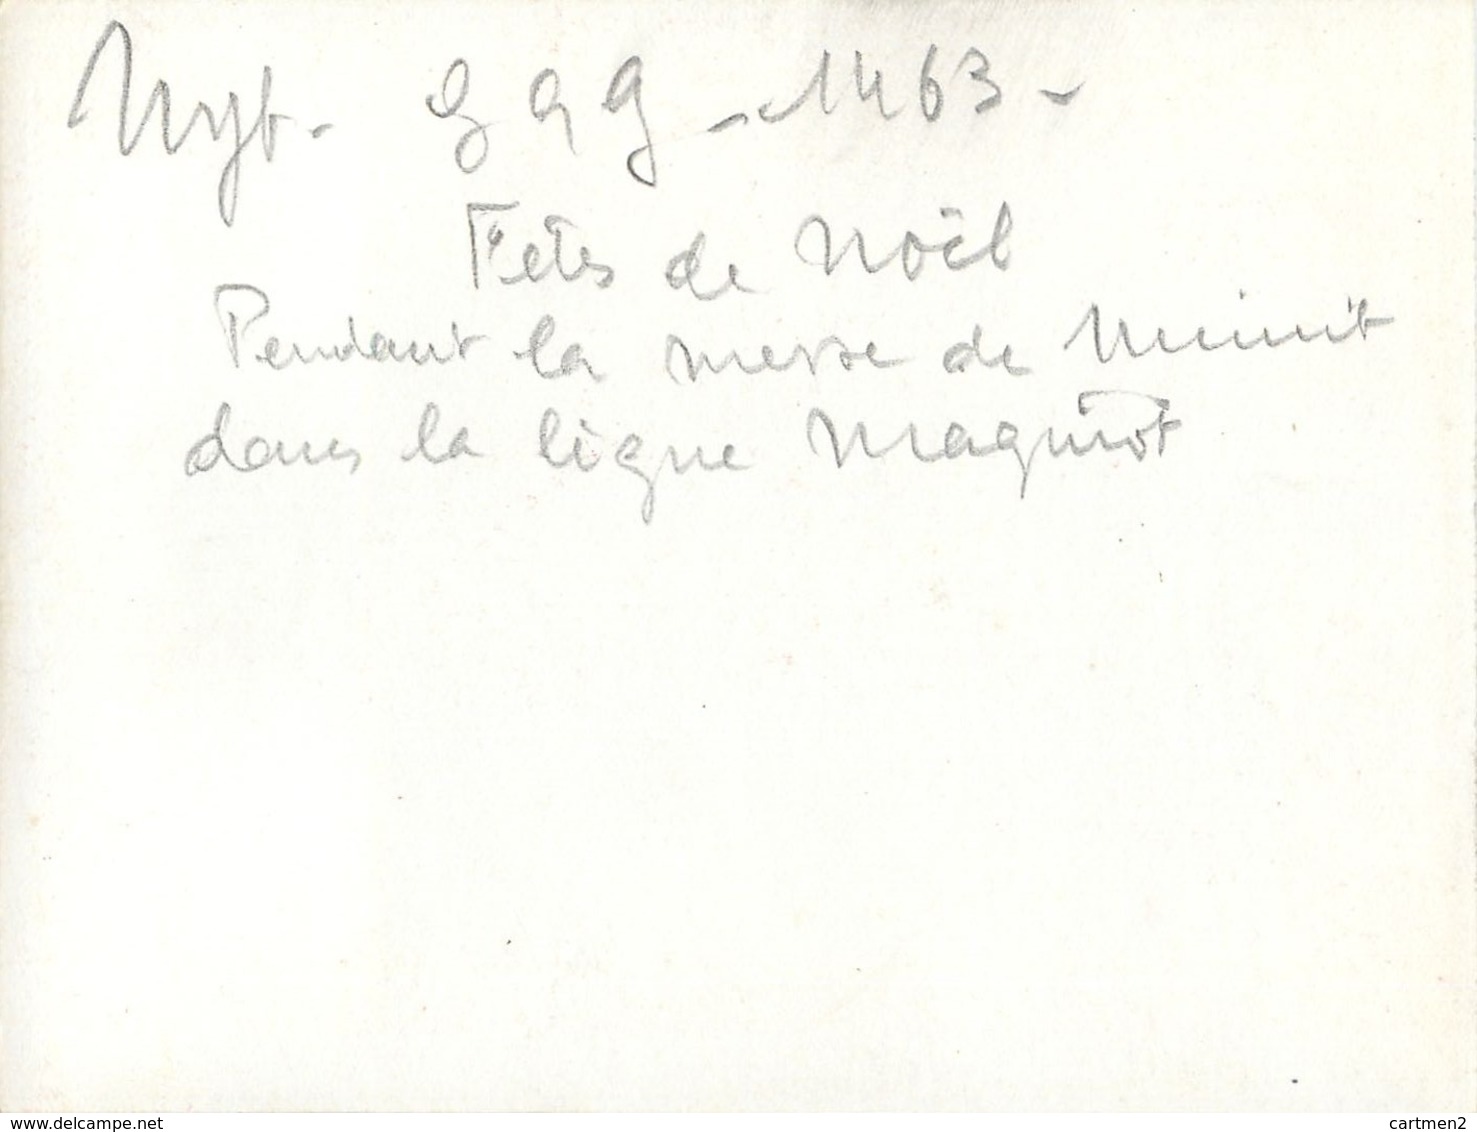 1463 -
Fêtes de Noël
Pendant la messe de Minuit
dans la ligne Maginot
delcampe.net
cartmen2